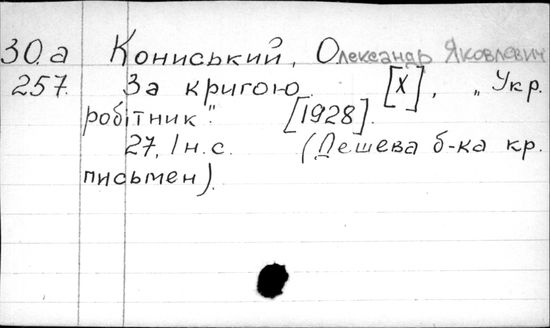 30.а Кониський, Олександр Яковлевич
257. За кригою. [Х], „Укр.
робітник". [1928].
27, 1 н.с. (Дешева б-ка кр.
письмен).